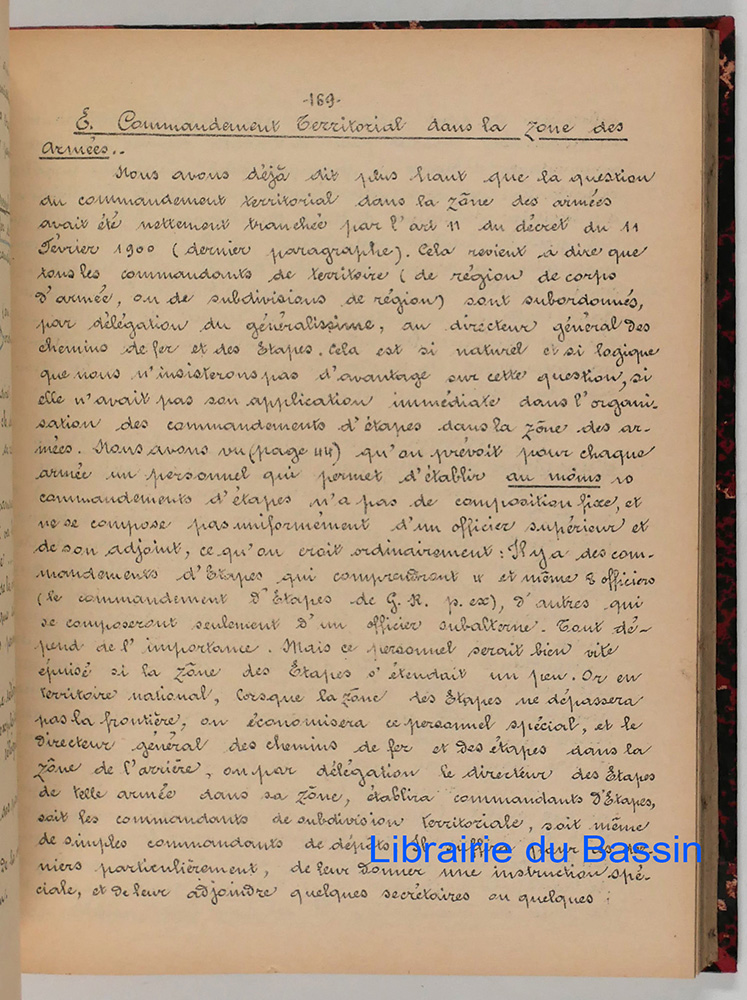 -169-
E. Commandement Territorial dans la zone des
Armées..
Nous avons déjà dit plus haut que la question
du commandement territorial dans la zône des armées
avait été nettement tranchée par l'art 11 du décret du 11
Février 1900 (dernier paragraphe). Cela revient à dire que
tous les commandants de territoire (de région de corps
d'armée, ou de subdivisions de région) sont subordonnés,
par délégation du généralissime, au directeur général des
chemins de fer et des Etapes. Cela est si naturel et si logique
que nous n'insisterons pas d'avantage sur cette question, si
elle n'avait pas son application immédiate dans l'organi-
sation des commandements d'étapes dans la zône des ar-
mées. Nous avons vu (page 44) qu'on prévoit pour chaque
armée un personnel qui permet d'établir au moins 10
commandements d'étapes n'a pas de composition fixe, et
ne se compose pas uniformément d'un officier supérieur et
de son adjoint, ce qu'on croit ordinairement : Il y a des com-
mandements d'Etapes qui comprendront 4 et même 8 officiers
(le commandement d'Etapes de G.R. p.ex), d'autres qui
se composeront seulement d'un officier subalterne. Tout dé-
pend de l'importance. Mais ce personnel serait bien vite
épuisé si la zône des Étapes s'étendait un peu. Or en
territoire national, lorsque la zône des Etapes ne dépassera
pas la frontière, on économisera ce personnel spécial, et le
Directeur général des chemins de fer et des étapes dans la
zône de l'arrière, ou par délégation le directeur des Etapes
de telle armée dans sa zône, établira commandants d'Etapes,
soit les commandants de subdivision territoriale, soit même
de simples commandants de dépôts. Il suffira, pour ces der-
niers particulièrement, de leur donner une instruction spé-
ciale, et de leur adjoindre quelques secrétaires ou quelques
Librairie du Bassin